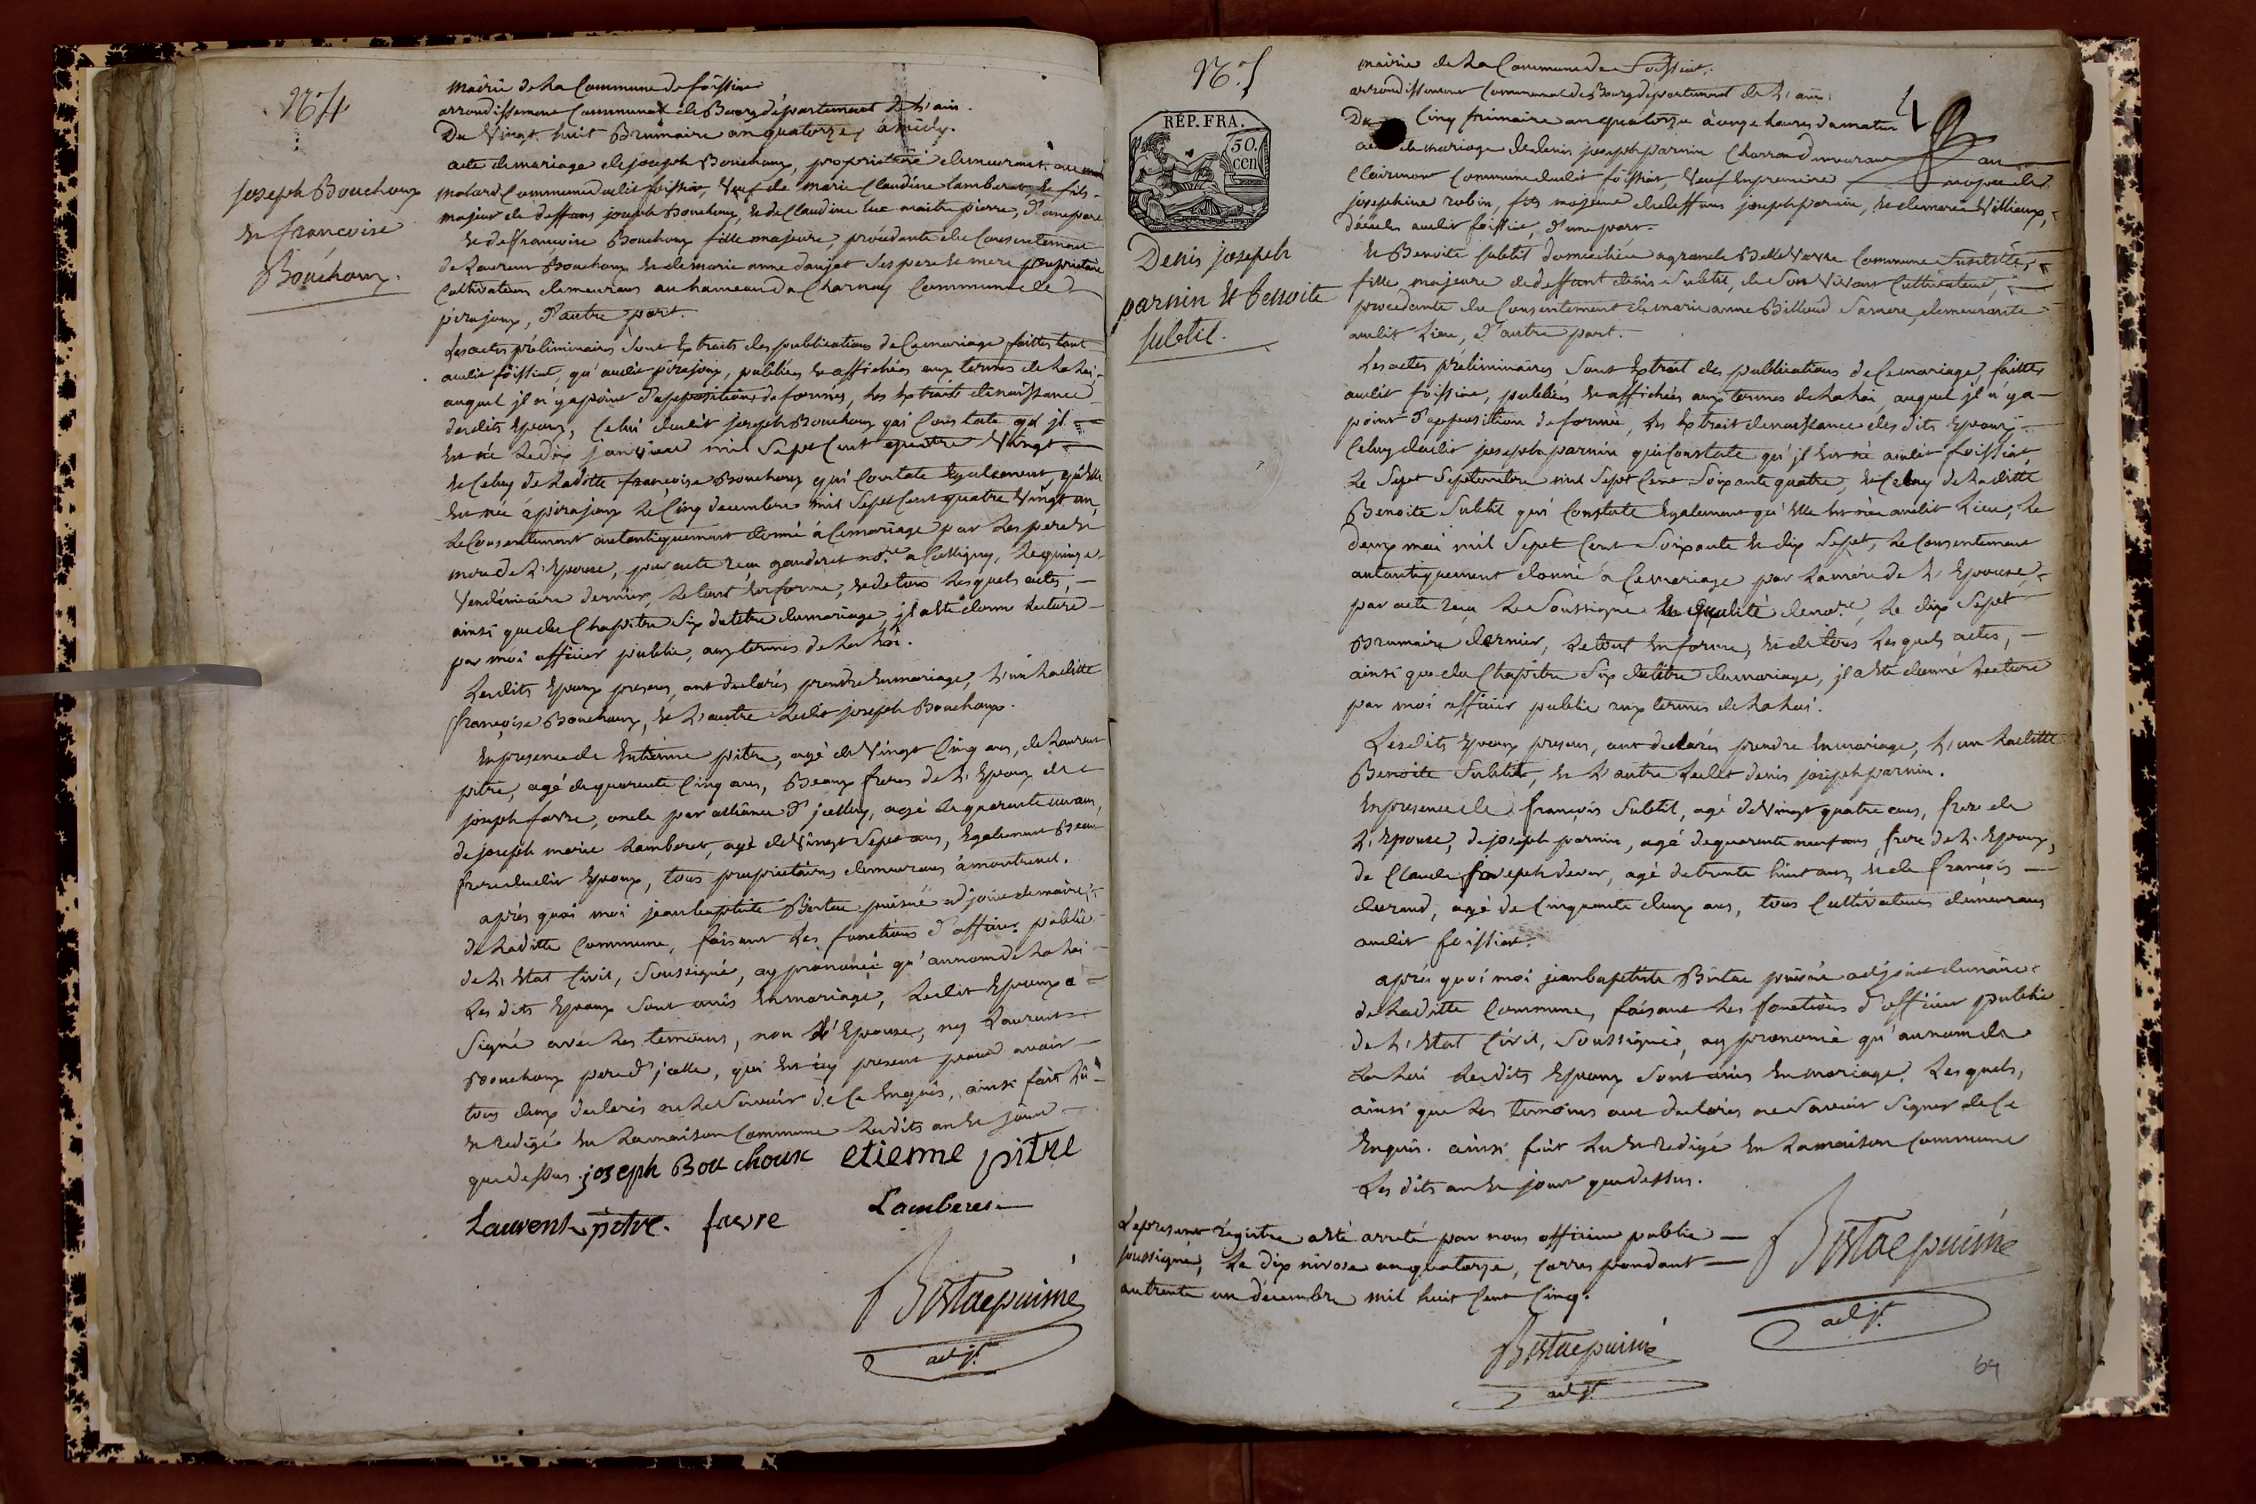 N.° 4
joseph Bouchoux
et francoise
Bouchoux.
Mairie de la Commune de foissiat
arrondissement Communal de Bourg département de l'ain.
Du Vingt huit Brumaire an quatorze, à midy.
acte de mariage de joseph Bouchoux, propriétaire demeurant au
Commune dudit foissiat, Veuf de marie Claudine Lamberet et fils
majeur de deffans joseph Bouchoux, et de Claudine Luc maitre pierre, d'une part
et de francoise Bouchoux fille majeure, procédante du Consentement
de Laurent Bouchoux et de marie anne daujat ses pere et mere propriétaire
Cultivateurs demeurans au hameau de Charnay Commune de
pirajoux, d'autre part.
Les actes préliminaires sont Extraits des publications de Ce mariage faittes tant
audit foissiat, qu'audit pirajoux, publiées et affichées aux termes de la Loi,
auquel il n'y a point d'opposition de formée, les Extraits de naissance
desdits Epoux, Celui dudit joseph Bouchoux qui Constate qu'il
Est né le dix janvier mil Sept Cent quatre Vingt
et Celuy de Laditte francoise Bouchoux qui Constate Egalement qu'elle
Est née à pirajoux le Cinq decembre mil Sept Cent quatre Vingt un,
le Consentement autantiquement donné à Ce mariage par les pere et
mere de l'Epouse, par acte reçu gauderet no.re a Colligny, le quinze
Vendémiaire dernier, le tout En forme, et de tous les quels actes,
ainsi que du Chapitre Six du titre du mariage, jl a Eté donné lecture
par moi officier public, aux termes de la Loi.
Lesdits Epoux presens, ont declarés prendre En mariage, l'un Laditte
françoise Bouchoux, et l'autre Ledit joseph Bouchoux.
En presence de Entienne pitre, agé de Vingt Cinq ans, de Laurent
pitre, agé de quarente Cinq ans, Beaux freres de l'Epoux, de
joseph favre, oncle par alliance d'jcelluy, agé de quarente un ans,
de joseph marie Lamberet, agé de Vingt Sept ans, Egalement Beau
frere dudit Epoux, tous propriétaires demeurans à montrevel.
après quoi moi jean baptiste Bertae puisné adjoint du maire
de Laditte Commune, faisant les fonctions d'officier public
de l'Etat Civil, Soussigné, ay prononcé qu'au nom de la Loi
Les dits Epoux Sont unis En mariage, Ledit Epoux a
Signé avec les temoins, non l'Epouse, ny Laurent
Bouchoux pere d'jcelle, qui Est icy present pour avoir
tous deux declarés ne le Scavoir de Ce Enquis, ainsi fait lu
et redigé En la maison Commune Lesdits an et jour
que dessus. joseph Bouchoux etienne pitre
Laurent pitre. favre Lamberet
Bertaepuiné
adjt.
N.° 5
REP. FRA.
50. cen
Denis joseph
parnin Et Benoite
subtil.
4
Mairie de la Commune de Foissiat.
arrondissement Communal de Bourg departement de l'ain.
Du Cinq frimaire an quatorze à onze heures du matin
acte de mariage de denis joseph parnin Charron demeurant au
Clairmont Commune dudit foissiat, Veuf En premiere de
josephine robin, fils majeur de deffans joseph parnin, et de marie Villieux,
décédés audit foissiat, d'une part.
Et Benoite Subtil domiciliée a grande Bellevavre Commune Susditte,
fille majeure de deffunt denis Subtil, de Son Vivant Cultivateur,
procedante du Consentement de marie anne Billoud Sa mere, demeurante
audit Lieu, d'autre part.
Les actes préliminaires Sont Extrait des publications de Ce mariage, faittes
audit foissiat, publiées et affichées aux termes de la Loi auquel jl n'y a
point d'opposition de formée, les Extrait de naissance des dits Epoux
Celuy dudit joseph parnin qui Constate qu'jl Est né audit foissiat
le Sept Septembre mil Sept Cent Soixante quatre, et Celuy de Laditte
Benoite Subtil qui Constate Egalement qu'elle Est née audit Lieu, le
deux mai mil Sept Cent Soixante et dix Sept, le Consentement
autantiquement donné a Ce mariage par la mère de l'Epouse,
par acte reçu le Soussigné En qualité de no.re, le dix Sept
Brumaire dernier, le tout En forme, et de tous les quels actes,
ainsi que du Chapitre Six du titre du mariage, jl a Eté donné lecture
par moi officier public aux termes de la Loi.
Lesdits Epoux presens, ont declarés prendre En mariage, l'un Laditte
Benoite Subtil, et l'autre Ledit denis joseph parnin.
En presence de françois Subtil, agé de Vingt quatre ans, frere de
l'Epouse, de joseph parnin, agé de quarente neuf ans, frere de l'Epoux,
de Claude joseph devar, agé de trente huit ans, et de françois
durand, agé de Cinquante deux ans, tous Cultivateurs demeurans
audit foissiat.
après quoi moi jean baptiste Bertae puisné adjoint du maire
de Laditte Commune, faisant les fonctions d'officier public
de l'Etat Civil, Soussigné, ay prononcé qu'au nom de
la Loi Lesdits Epoux Sont unis En mariage. Lesquels,
ainsi que les temoins ont declarés ne Savoir Signer de Ce
Enquis. ainsi fait lu et redigé En la maison Commune
Les dits an et jour que dessus.
Le present régistre a Eté arreté par nous officier public
soussigné, le dix nivose an quatorze, Correspondant
au trente un décembre mil huit Cent Cinq.
Bertaepuiné
adjt.
Bertaepuiné
adjt.
64